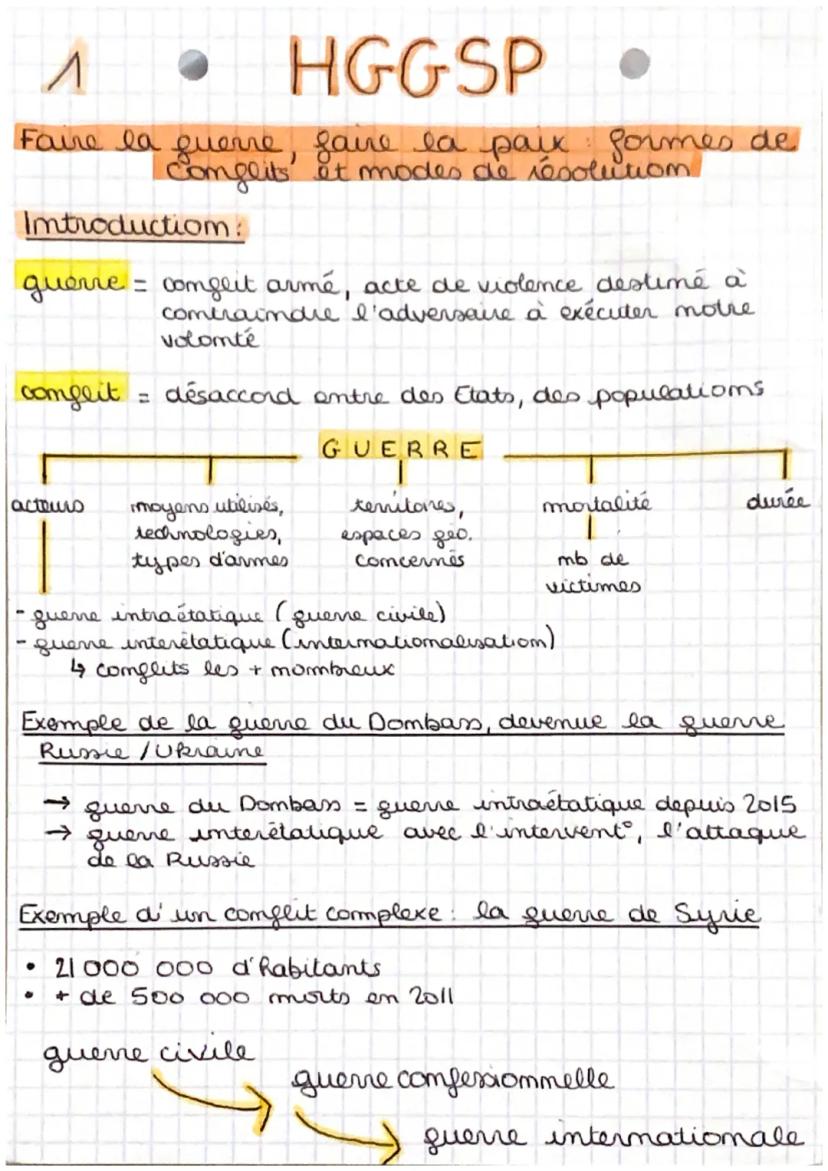 1 • HGGSP •
Faire la guerre, faire la paix : formes de
conflits et modes de résolution
Introduction :
guerre = conflit armé, acte de violence destiné à
contraindre l'adversaire à exécuter notre
volonté
conflit = désaccord entre des Etats, des populations
GUERRE
acteurs
moyens utilisés,
technologies,
types d'armes
territoires,
espaces géo.
concernés
mortalité
nb de
victimes
durée
- guerre intraétatique (guerre civile)
- guerre interétatique (internationalisation)
↳ conflits les + nombreux
Exemple de la guerre du Donbass, devenue la guerre
Russie / Ukraine
→ guerre du Donbass = guerre intraétatique depuis 2015
→ guerre interétatique avec l'intervent°, l'attaque
de la Russie
Exemple d'un conflit complexe : la guerre de Syrie
• 21 000 000 d'habitants
• + de 500 000 morts en 2011
guerre civile
guerre confessionnelle
guerre internationale